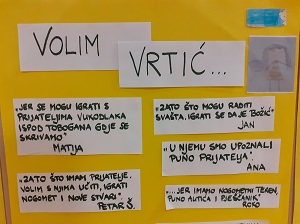 VOLIM
VRTIĆ...
"JER SE MOGU IGRATI S
PRIJATELJIMA VUKODLAKA
ISPOD TOBOGANA GDJE SE
SKRIVAMO"
MATIJA
"ZATO ŠTO IMAM PRIJATELJE.
VOLIM S NJIMA UČITI, IGRATI
NOGOMET I NOVE STVARI".
PETAR Š.
"ZATO ŠTO MOGU RADITI
SVAŠTA. IGRATI SE DA JE 'BOŽIĆ'
JAN
"U NJEMU SMO UPOZNALI
PUNO PRIJATELJA".
ANA
"...JER IMAMO NOGOMETNI TEREN,
PUNO AUTIĆA I PJEŠČANIK"
ROKO